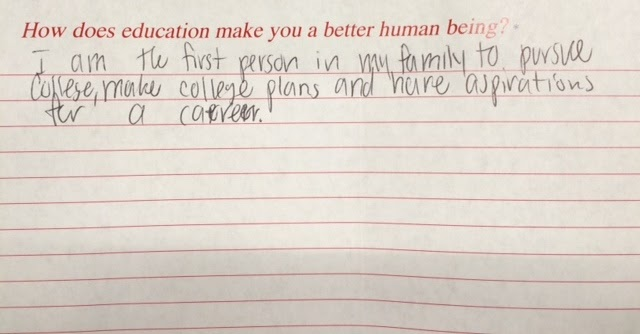 How does education make you a better human being?
I am the first person in my family to pursue
College, make college plans and have aspirations
for a career.